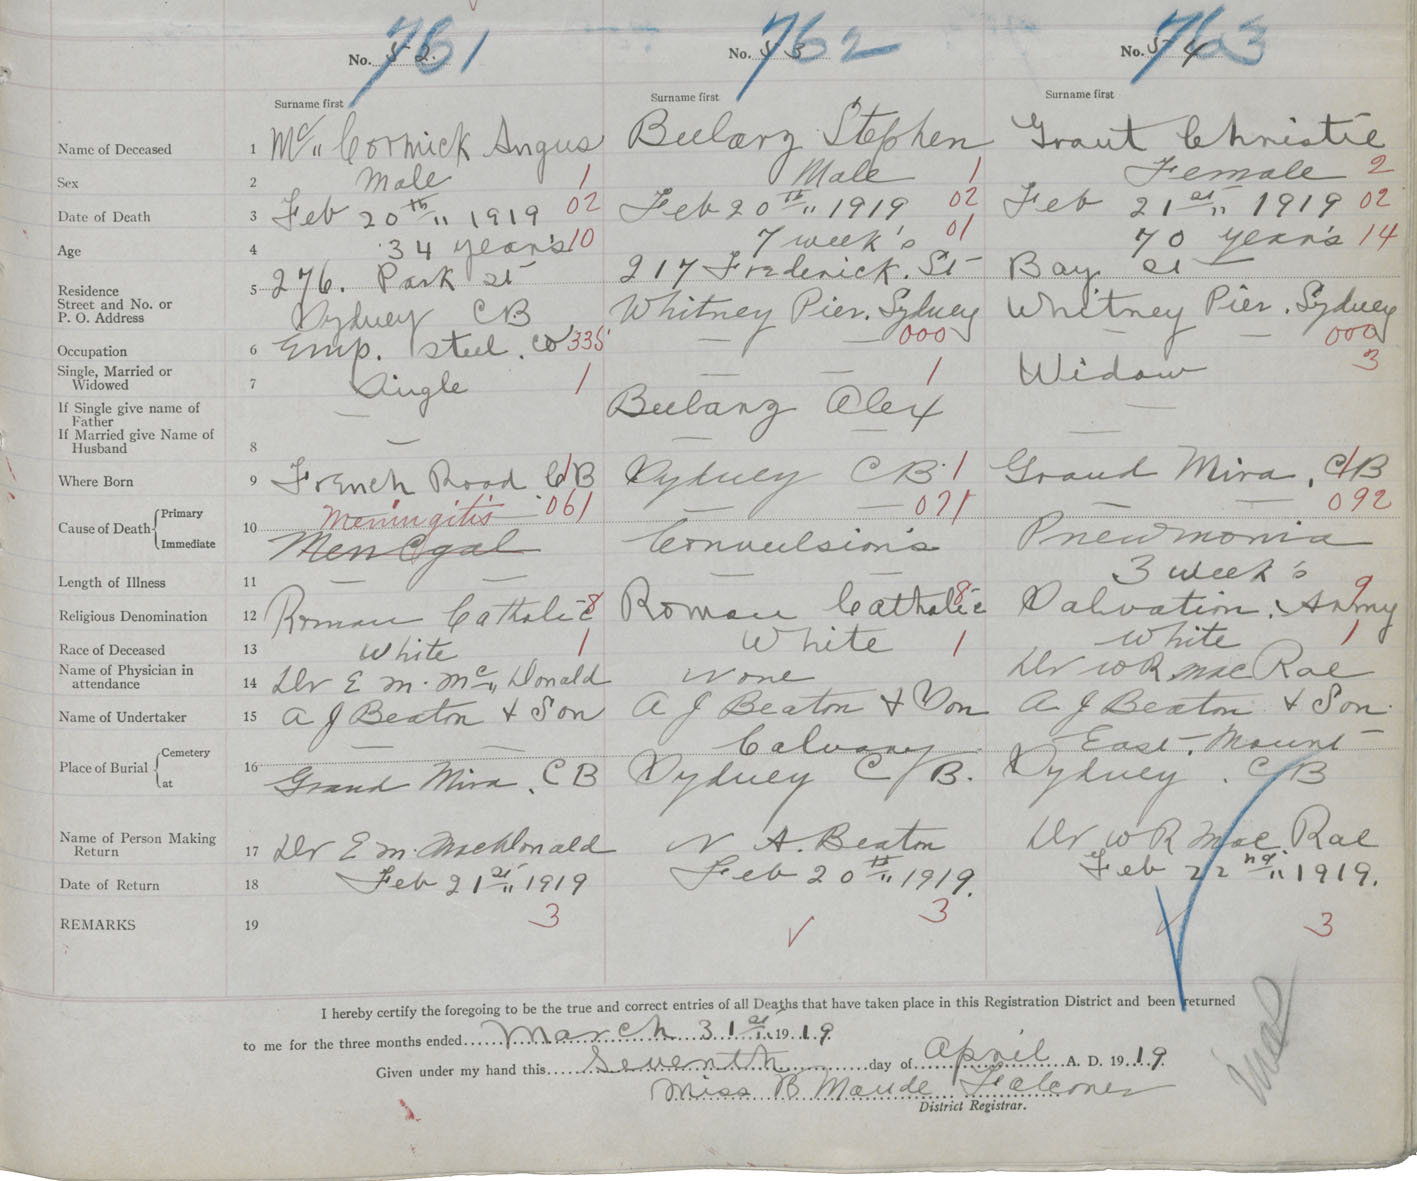 761 762 763
No. 52 No. 53 No. 54
Surname first Surname first Surname first
Name of Deceased 1 Mc Cormick Angus Beebarz Stephen Grant Christie
Sex 2 Male 1 Male 1 Female 2
Date of Death 3 Feb 20th 1919 02 Feb 20th 1919 02 Feb 21st 1919 02
Age 4 34 year's 10 7 week's 01 70 year's 14
Residence Street and No. or P. O. Address 5 276. Park St 217 Frederick. St Bay St
Sydney CB Whitney Pier. Sydney Whitney Pier. Sydney
Occupation 6 Emp. Steel. Co 335 — — 000 — — 000
Single, Married or Widowed 7 Single 1 — — 1 Widow 3
If Single give name of Father — Beebarz Alex —
If Married give Name of Husband 8 — — — —
Where Born 9 French Road CB 1 Sydney CB. 1 Grand Mira, CB 1
Cause of Death Primary 10 Meningitis 061 — — 071 — — 092
Immediate Convulsion's Pneumonia
Length of Illness 11 — — — — 3 week's
Religious Denomination 12 Roman Catholic 8 Roman Catholic 8 Salvation. Army 9
Race of Deceased 13 White 1 White 1 White 1
Name of Physician in attendance 14 Dr E M. Mc Donald None Dr W R MacRae
Name of Undertaker 15 A J Beaton & Son A J Beaton & Son A J Beaton & Son.
Place of Burial Cemetery 16 — — Calvary East. Mount
at Grand Mira. CB Sydney CB. Sydney. CB
Name of Person Making Return 17 Dr E M. MacDonald N A. Beaton Dr W R Mac Rae
Date of Return 18 Feb 21st 1919 Feb 20th 1919. Feb 22nd 1919.
REMARKS 19 3 3 3
I hereby certify the foregoing to be the true and correct entries of all Deaths that have taken place in this Registration District and been returned
to me for the three months ended March 31st 1919.
Given under my hand this Seventh day of April A. D. 1919.
Miss B Maude Falconer
District Registrar.